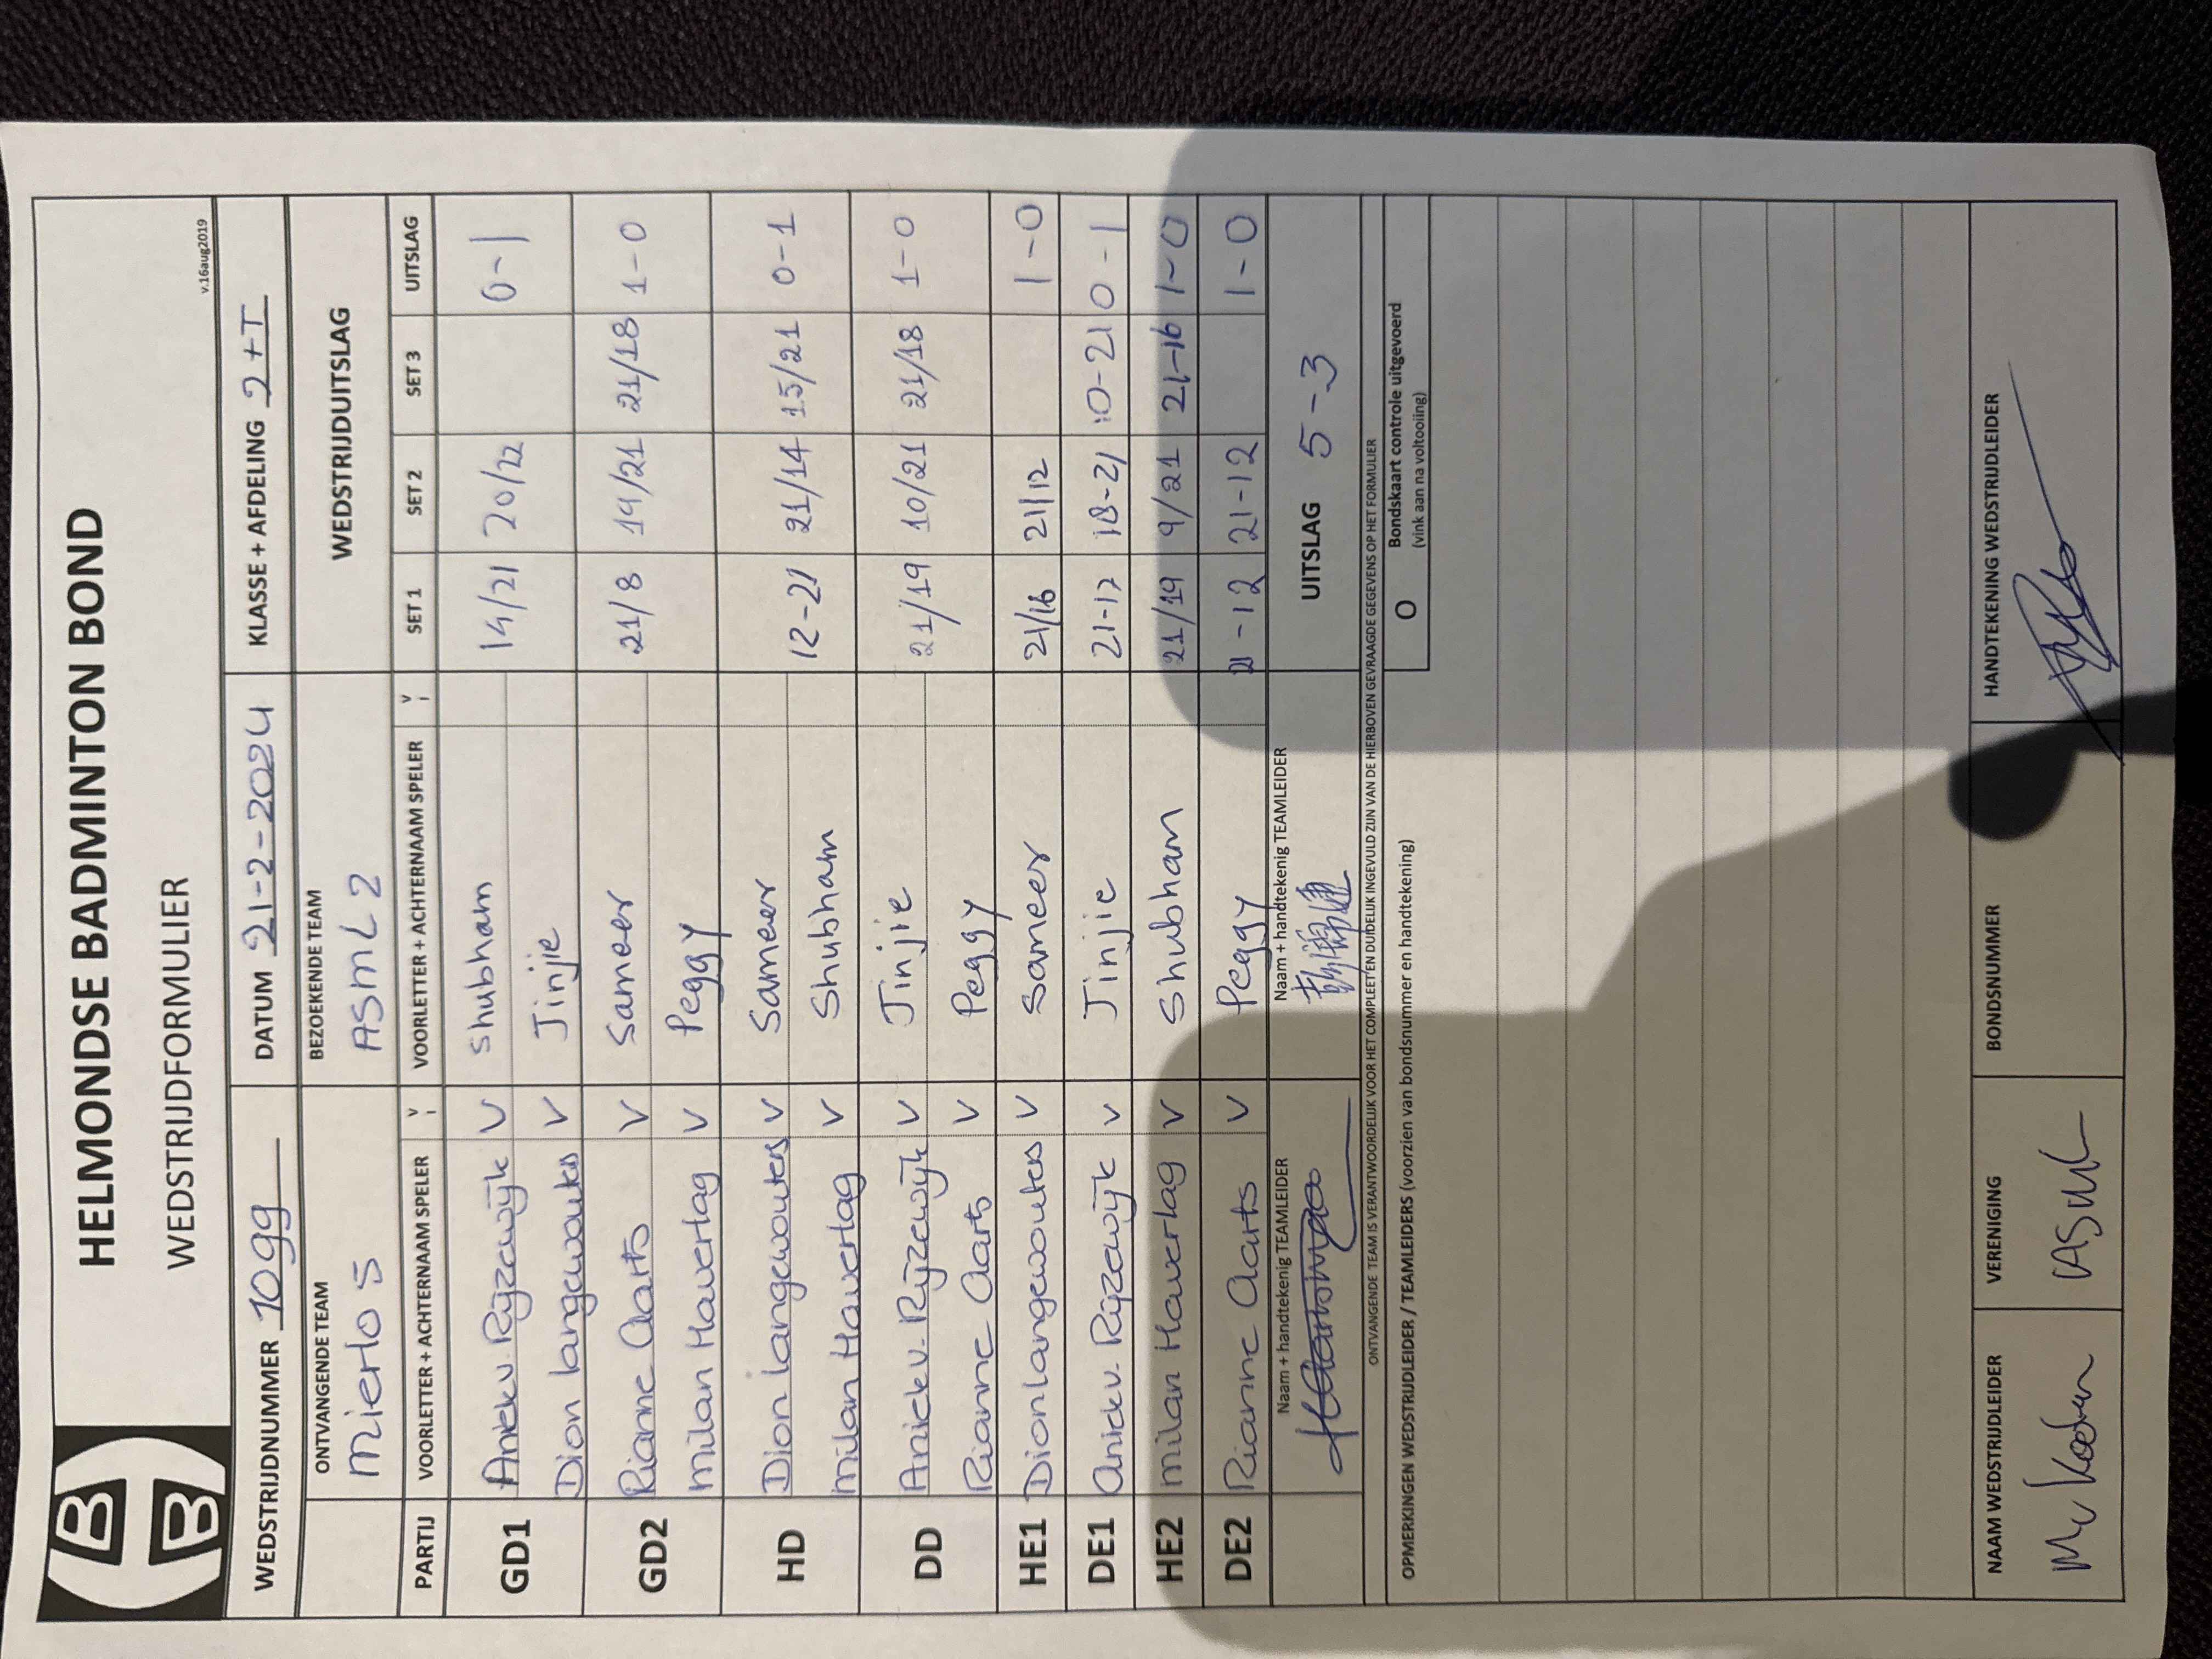 HELMONDSE BADMINTON BOND
WEDSTRIJDFORMULIER
v.16aug2019
WEDSTRIJDNUMMER 1099 DATUM 21-2-2024 KLASSE + AFDELING 2+T
ONTVANGENDE TEAM BEZOEKENDE TEAM WEDSTRIJDUITSLAG
Mierlo 5 ASML 2
PARTIJ VOORLETTER + ACHTERNAAM SPELER V VOORLETTER + ACHTERNAAM SPELER V SET 1 SET 2 SET 3 UITSLAG
GD1 Anick v. Rijzewijk V Shubham 14/21 20/22 0-1
Dion langewouters V Jinjie
GD2 Rianne Aarts V Sameer 21/8 19/21 21/18 1-0
milan Haverlag V Peggy
HD Dion langewouters V Sameer 12-21 21/14 15/21 0-1
milan Haverlag V Shubham
DD Anick v. Rijzewijk V Jinjie 21/19 10/21 21/18 1-0
Rianne Aarts V Peggy
HE1 Dion langewouters V Sameer 21/16 21/12 1-0
DE1 Anick v. Rijzewijk V Jinjie 21-17 18-21 10-21 0-1
HE2 milan Haverlag V Shubham 21/19 9/21 21-16 1-0
DE2 Rianne Aarts V Peggy 21-12 21-12 1-0
Naam + handtekenig TEAMLEIDER Naam + handtekenig TEAMLEIDER UITSLAG 5-3
ONTVANGENDE TEAM IS VERANTWOORDELIJK VOOR HET COMPLEET EN DUIDELIJK INGEVULD ZIJN VAN DE HIERBOVEN GEVRAAGDE GEGEVENS OP HET FORMULIER
OPMERKINGEN WEDSTRIJDLEIDER / TEAMLEIDERS (voorzien van bondsnummer en handtekening) O Bondskaart controle uitgevoerd
(vink aan na voltooiing)
NAAM WEDSTRIJDLEIDER VERENIGING BONDSNUMMER HANDTEKENING WEDSTRIJDLEIDER
ASML